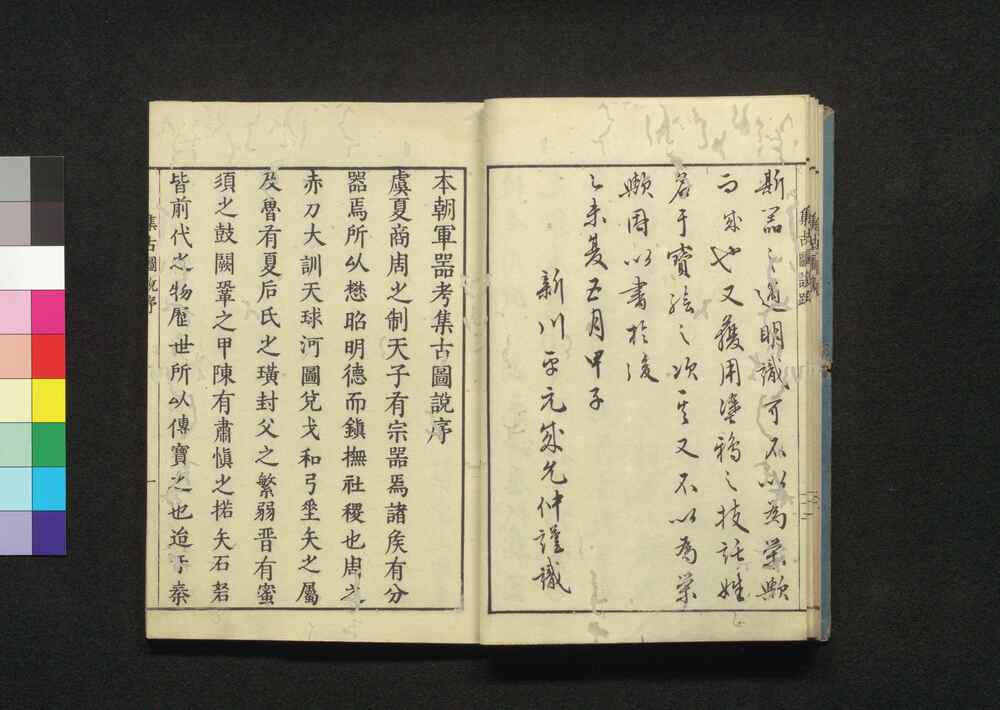 斯器之適明識可不以為榮歟
而成也又獲用塗鴉之技託姓
名于寶繪之次其又不以為榮
歟因以書於後
乙未夏五月甲子
新川平元成允仲謹識
本朝軍器考集古圖說序
虞夏商周之制天子有宗器焉諸矦有分
器焉所以懋昭明德而鎮撫社稷也周之
赤刀大訓天球河圖兌戈和弓垂矢之屬
及魯有夏后氏之璜封父之繁弱晋有蜜
須之鼓闕鞏之甲陳有肅愼之楛矢石砮
皆前代之物歷世所以傳寶之也迨于秦
集古圖說序
一